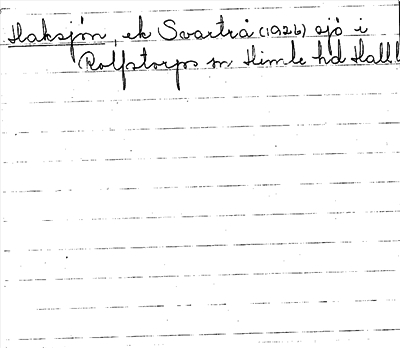 Haksjön, ek Svartrå (1926) sjö i
Rolfstorps sn Himle hd Hall